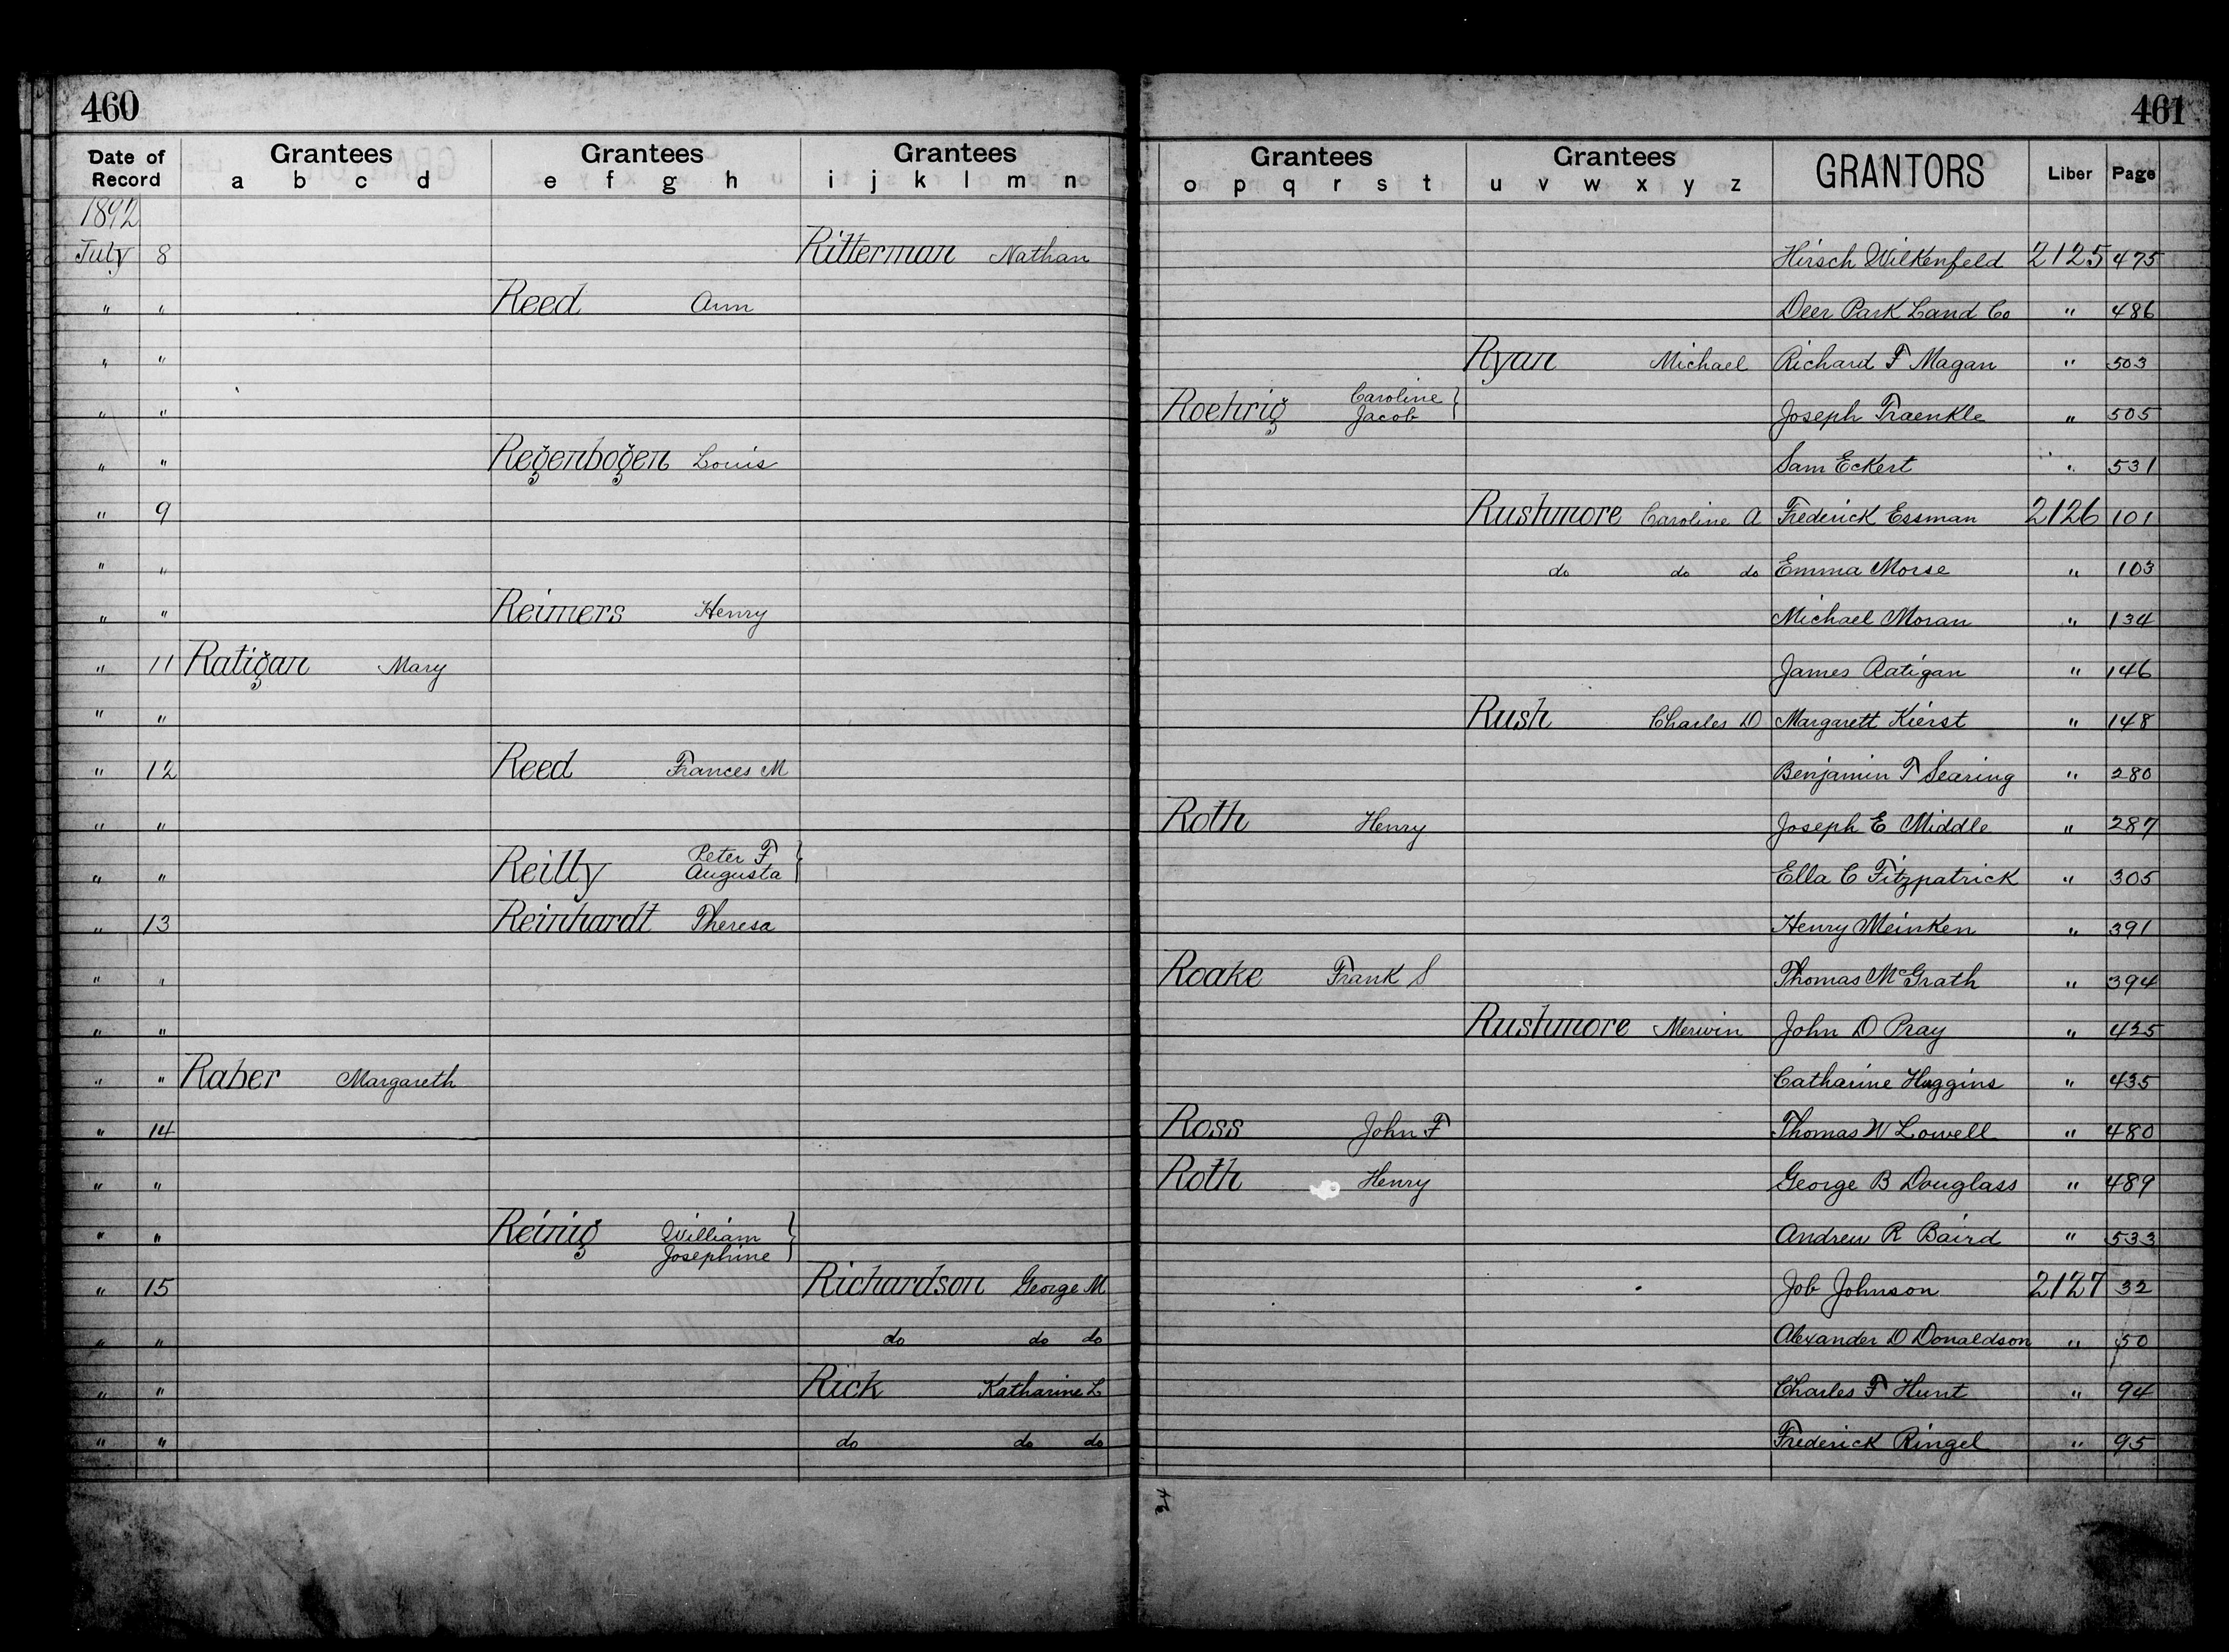 460 461
Date of Record Grantees a b c d Grantees e f g h Grantees i j k l m n Grantees o p q r s t Grantees u v w x y z GRANTORS Liber Page
1892
July 8 Ritterman Nathan Hirsch Wilkenfeld 2125 475
" " Reed Ann Deer Park Land Co " 486
" " Ryan Michael Richard F Magan " 503
" " Roehrig Caroline Jacob } Joseph Fraenkle " 505
" " Regenbogen Louis Sam Eckert " 531
" 9 Rushmore Caroline A Frederick Essman 2126 101
" " do do do Emma Morse " 103
" " Reimers Henry Michael Moran " 134
" 11 Ratigan Mary James Ratigan " 146
" " Rush Charles D Margarett Kierst " 148
" 12 Reed Frances M Benjamin T Searing " 280
" " Roth Henry Joseph E Middle " 287
" " Reilly Peter F Augusta } Ella C Fitzpatrick " 305
" 13 Reinhardt Theresa Henry Meinken " 391
" " Roake Frank S Thomas McGrath " 394
" " Rushmore Merwin John D Pray " 425
" " Raber Margareth Catharine Huggins " 435
" 14 Ross John F Thomas W Lowell " 480
" " Roth Henry George B Douglass " 489
" " Reinig William Josephine } Andrew R Baird " 533
" 15 Richardson George M Job Johnson 2127 32
" " do do do Alexander D Donaldson " 50
" " Rick Katharine L Charles F Hunt " 94
" " do do do Frederick Ringel " 95